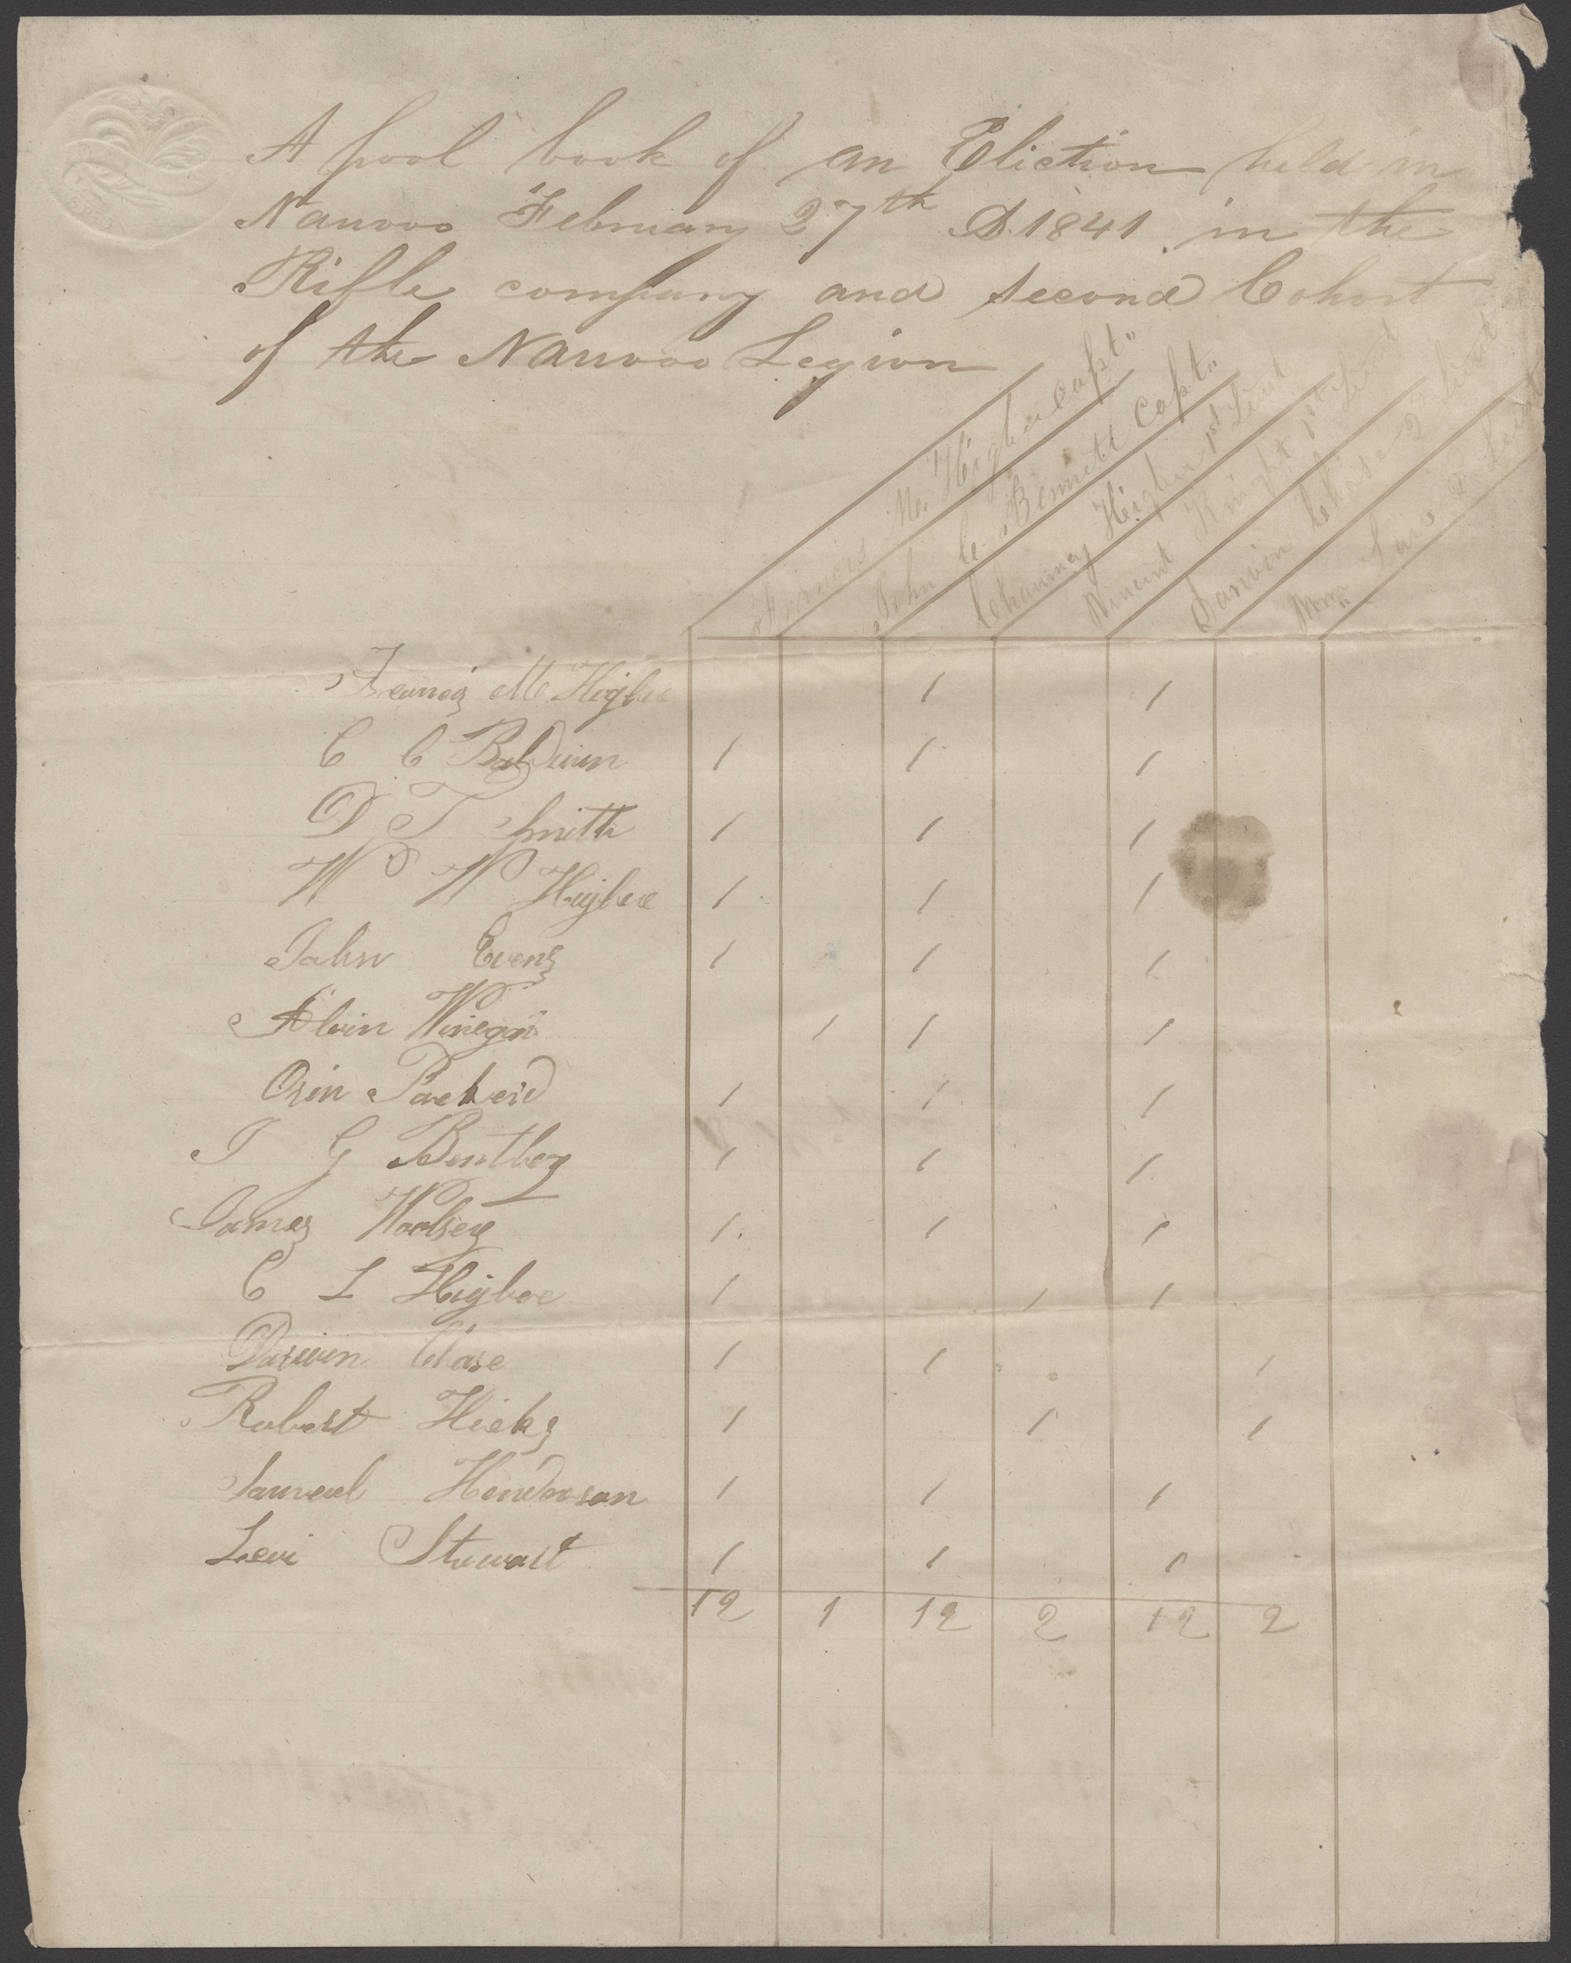 A pool book of an Eliction held in
Nauvoo February 27th AD 1841 in the
Rifle company and second Cohort
of the Nauvoo Legion
Francis M. Higbee Capt"
John C. Bennett Capt"
Chauncy Higbee 1st Lieut
Vincint Knight 1st Lieut
Darwin Chase 2d Lieut
Wm Law 2 Lieut
Francis M Higbee 1 1
C C Baldwin 1 1 1
D T Smith 1 1 1
W W Higbee 1 1 1
John Evens 1 1 1
Alvin Winegar 1 1 1
Orin Packerd 1 1 1
J G Bentley 1 1 1
James Woolsey 1 1 1
C L Higbee 1 1 1
Darwin Chase 1 1 1
Robert Hicks 1 1 1
Samuel Henderson 1 1 1
Levi Stewart 1 1 1
12 1 12 2 12 2